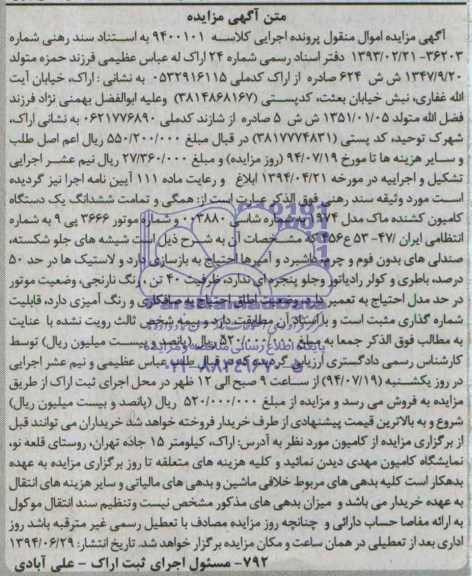 متن آگهی مزایده
آگهی مزایده اموال منقول پرونده اجرایی کلاسه ۹۴۰۰۱۰۱ به استناد سند رهنی شماره
۳۶۲۰۳-۱۳۹۳/۰۲/۲۱ دفتر اسناد رسمی شماره ۲۴ اراک له عباس عظیمی فرزند حمزه متولد
۱۳۴۷/۹/۲۰ ش ش ۶۲۴ صادره از اراک کدملی ۰۵۳۲۹۱۶۱۱۵ به نشانی : اراک، خیابان آیت
الله غفاری، نبش خیابان بعثت، کدپستی (۳۸۱۴۸۶۸۱۶۷) وعلیه ابوالفضل بهمنی نژاد فرزند
فضل الله متولد ۱۳۵۱/۰۱/۰۵ ش ش ۵ صادره از شازند کدملی ۰۶۲۱۷۷۶۸۹۰ به نشانی اراک،
شهرک توحید، کد پستی (۳۸۱۷۷۷۴۸۳۱) در قبال مبلغ ۵۵۰/۲۰۰/۰۰۰ ریال اعم اصل طلب
و سایر هزینه ها تا مورخ ۹۴/۰۷/۱۹ (روز مزایده) و مبلغ ۲۷/۳۶۰/۰۰۰ ریال نیم عشر اجرایی
تشکیل و اجراییه در مورخه ۱۳۹۴/۰۴/۲۱ ابلاغ و رعایت ماده ۱۱۱ آیین نامه اجرا نیز گردیده
است مورد وثیقه سند رهنی فوق الذکر عبارت است از: همگی و تمامت ششدانگ یک دستگاه
کامیون کشنده ماک مدل ۱۹۷۴ به شماره شاسی ۰۰۳۸۸۰ و شماره موتور ۳۶۶۶ پی ۹ به شماره
انتظامی ایران ۴۷/ ۵۳ ع ۴۵۶ که مشخصات آن به شرح ذیل است شیشه های جلو شکسته،
صندلی های بدون فوم و چرم داشبرد و آمپرها احتیاج به بازسازی دارد و لاستیک ها در حد ۵۰
درصد، باطری و کولر رادیاتور وجلو پنجره ای ندارد، ظرفیت ۴۰ تن ، رنگ نارنجی، وضعیت موتور
در حد مدل احتیاج به تعمیر دارد، وضعیت اطاق احتیاج به صافکاری و رنگ آمیزی دارد، قابلیت
شماره گذاری مثبت است و با اسناد آن مطابقت دارد و بیمه شخص ثالث رویت نشده با عنایت
به مطالب فوق الذکر جمعا به مبلغ ۵۲۰/۰۰۰/۰۰۰ ریال (پانصد و بیست میلیون ریال) توسط
کارشناس رسمی دادگستری ارزیابی گردیده که در قبال طلب عباس عظیمی و نیم عشر اجرایی
در روز یکشنبه (۹۴/۰۷/۱۹) از ساعت ۹ صبح الی ۱۲ ظهر در محل اجرای ثبت اراک از طریق
مزایده به فروش می رسد و مزایده از مبلغ ۵۲۰/۰۰۰/۰۰۰ ریال (پانصد و بیست میلیون ریال)
شروع و به بالاترین قیمت پیشنهادی از طرف خریدار فروخته خواهد شد خریداران می توانند قبل
از برگزاری مزایده از کامیون مورد نظر به آدرس: اراک، کیلومتر ۱۵ جاده تهران، روستای قلعه نو،
نمایشگاه کامیون مهدی دیدن نمائید و کلیه هزینه های متعلقه تا روز برگزاری مزایده به عهده
بدهکار است کلیه بدهی های مربوط خلافی ماشین و بدهی های مالیاتی و سایر هزینه های انتقال
به عهده خریدار می باشد و میزان بدهی های مذکور مشخص نیست وتنظیم سند انتقال موکول
به ارائه مفاصا حساب دارائی و چنانچه روز مزایده مصادف با تعطیل رسمی غیر مترقبه باشد روز
اداری بعد از تعطیلی در همان ساعت و مکان مزایده برگزار خواهد شد. تاریخ انتشار: ۱۳۹۴/۰۶/۲۹
۷۹۲- مسئول اجرای ثبت اراک - علی آبادی